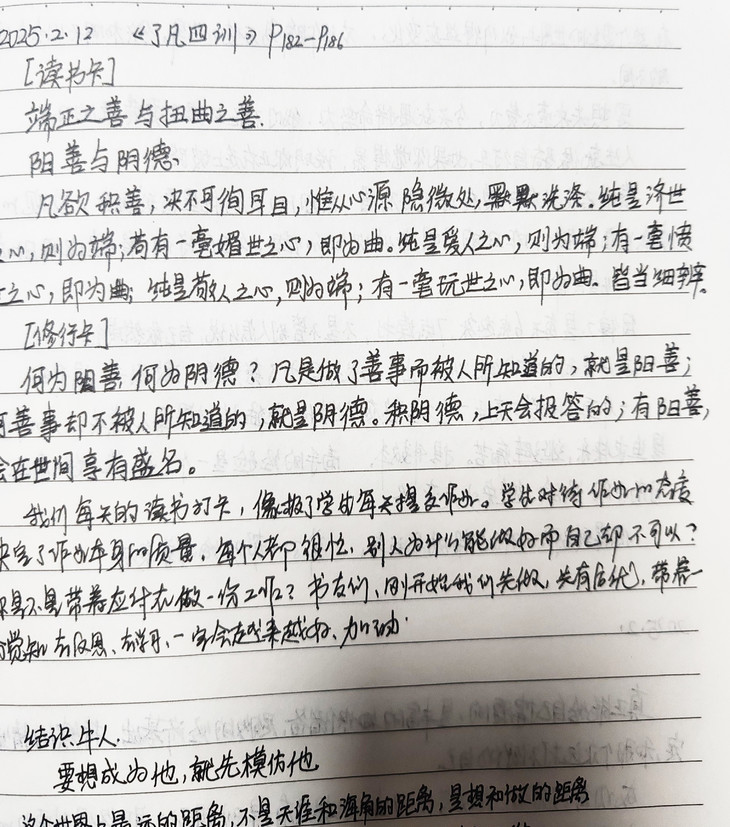 2025.2.12 《了凡四训》P182-P186
[读书卡]
端正之善与扭曲之善.
阳善与阴德.
凡欲积善,决不可徇耳目,惟从心源隐微处,默默洗涤。纯是济世
心,则为端;苟有一毫媚世之心,即为曲。纯是爱人之心,则为端;有一毫愤
之心,即为曲;纯是敬人之心,则为端;有一毫玩世之心,即为曲。皆当细辨。
[修行卡]
何为阳善,何为阴德?凡是做了善事而被人所知道的,就是阳善;
善事却不被人所知道的,就是阴德。积阴德,上天会报答的;有阳善,
会在世间享有盛名。
我们每天的读书打卡,像极了学生每天提交作业。学生对待作业的态度
决定了作业本身的质量。每个人都很忙,别人为什么能做好而自己却不可以?
是不是带着应付在做一份工作?书友们,刚开始我们先做,先有后优,带着一
觉知去反思、去学习、一定会越来越好、加油.
结识牛人.
要想成为他,就先模仿他.
这个世界上最远的距离,不是天涯和海角的距离,是想和做的距离